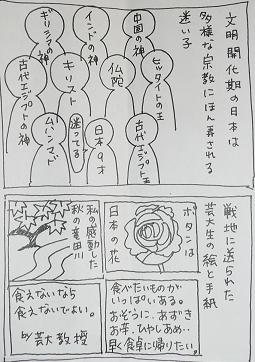 文明開化期の日本は
多様な宗教にほん弄される
迷い子
中国の神
インドの神
ギリシアの神
ヒッタイトの王
仏陀
キリスト
古代エジプトの神
古代エジプト王
日本9才
迷ってる
ムハンマド
戦地に送られた
芸大生の絵と手紙
ボタンは
日本の花
私の感動した
秋の竜田川
食べたいものが
いっぱいある。
おぞうに、あずき
お茶、ひやしあめ…
早く食卓に帰りたい。
食えないなら
食えないでよい。
by芸大教授